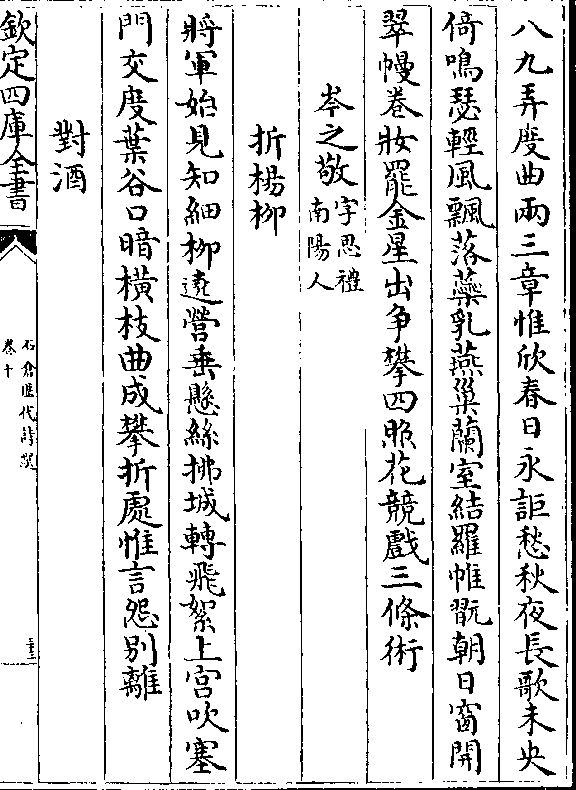 八九弄度曲兩三章惟欣春日永詎愁秋夜長歌未央
倚鳴瑟輕風飄落蘂乳燕巢蘭室結羅帷翫朝日窗開
翠幔卷妝罷金星出爭攀四照花競戲三條術
岑之敬字思禮南陽人
折楊柳
將軍始見知細柳遶營垂懸絲拂城轉飛絮上宮吹塞
門交度葉谷口暗橫枝曲成攀折處惟言怨別離
對酒
欽定四庫全書
石倉歷代詩選
卷十